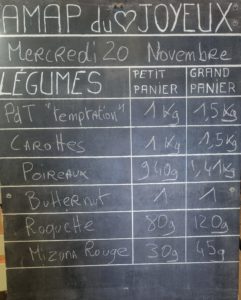 AMAP du ♡ JOYEUX
Mercredi 20 Novembre
LÉGUMES PETIT PANIER GRAND PANIER
PdT "temptation" 1 Kg 1,5 Kg
CAROTTES 1 Kg 1,5 Kg
POIREAUX 940g 1,41 Kg
Butternut 1 1
Roquette 80g 120g
Mizuna Rouge 30g 45g